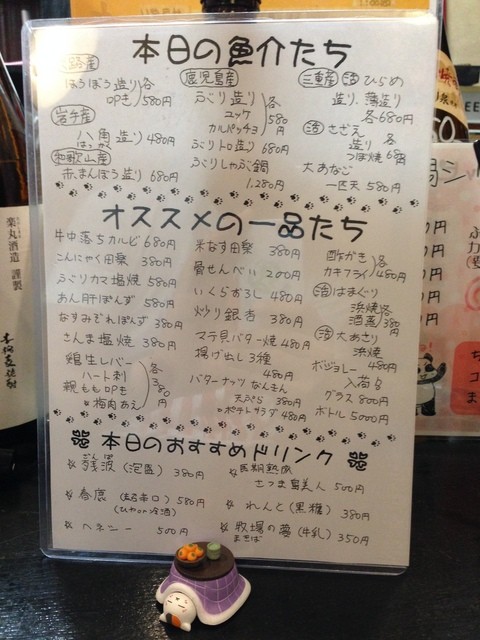 本日の魚介たち
ほうぼう造り 各
叩き 580円
岩手産
八角造り 480円
はっかく
和歌山産
赤まんぼう造り 680円
鹿児島産
ぶり造り 各
ユッケ 580
カルパッチョ 円
ぶりトロ塩焼 680円
ぶりしゃぶ鍋
1.280円
三重産 活 ひらめ
造り、薄造り
各680円
活 さざえ
造り 各
つぼ焼 680円
大あなご
一匹天 580円
オススメの一品たち
牛中落ちカルビ 680円
こんにゃく田楽 380円
ぶりカマ塩焼 580円
あん肝ぽんず 580円
なすみぞれぽんず 380円
さんま塩焼 380円
鶏生レバー
ハート刺 各
親もも叩き 380
梅肉あえ 円
米なす田楽 380円
骨せんべい 200円
いくらおろし 480円
炒り銀杏 380円
マテ貝バター焼 480円
揚げ出し3種
480円
バターナッツなんきん
天ぷら 380円
ポテトサラダ 480円
カキフライ 480円
活 はまぐり
浜焼 各
酒蒸 380円
活 大あさり
浜焼
480円
ボジョレー
入荷
グラス 800円
ボトル 5000円
本日のおすすめドリンク
残波(泡盛) 380円
春鹿(超辛口) 580円
(ひやor冷酒)
ヘネシー 500円
長期熟成
さつま島美人 500円
れんと(黒糖) 380円
牧場の夢(牛乳) 350円
まきば
楽丸酒造 謹製